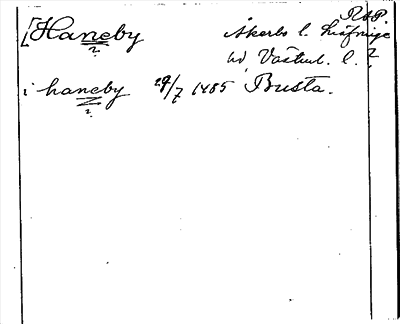 RAP.
[Haneby Åkerbo l.
?
hd Västml. l. ?
i haneby 29/7 1485 Busta.
?